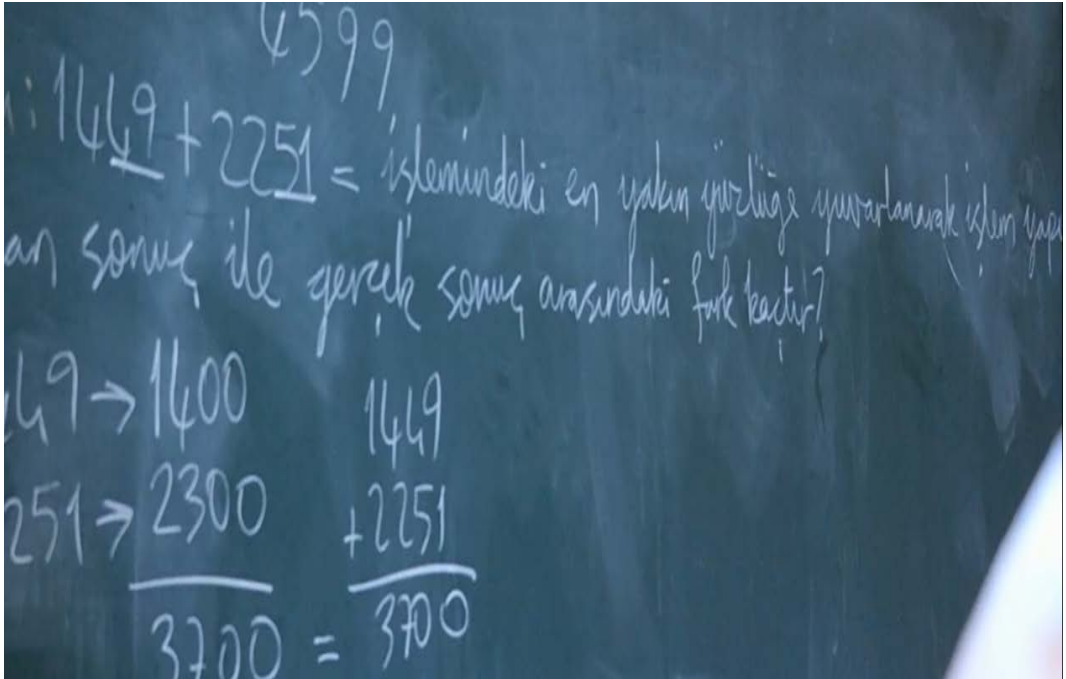 4599
: 1449 + 2251 = işlemindeki en yakın yüzlüğe yuvarlanarak işlem yapı
an sonuç ile gerçek sonuç arasındaki fark kaçtır?
449 → 1400 1449
251 → 2300 +2251
3700 = 3700